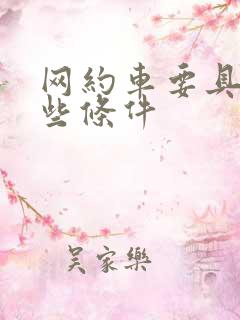 网約車要具
些條件
吴家樂